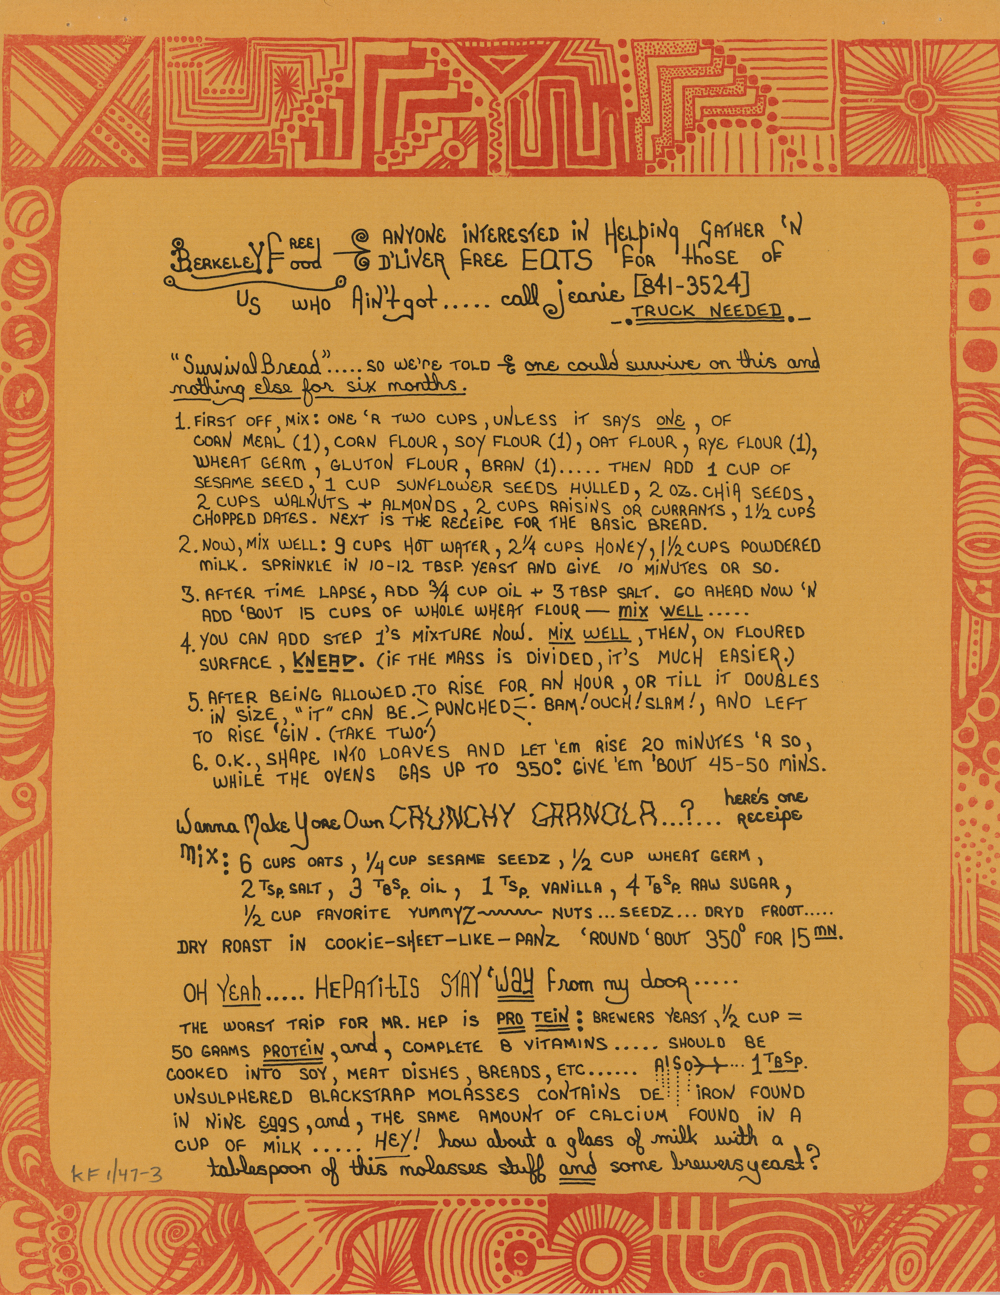 BERKELEY FREE FOOD ANYONE INTERESTED IN HELPING GATHER 'N
D'LIVER FREE EATS FOR those OF
US WHO Ain't got..... call jeanie [841-3524]
TRUCK NEEDED.
"Survival Bread"..... SO WE'RE TOLD one could survive on this and
nothing else for six months.
1. FIRST OFF, MIX: ONE 'R TWO CUPS, UNLESS IT SAYS ONE, OF
CORN MEAL (1), CORN FLOUR, SOY FLOUR (1), OAT FLOUR, RYE FLOUR (1),
WHEAT GERM, GLUTON FLOUR, BRAN (1)..... THEN ADD 1 CUP OF
SESAME SEED, 1 CUP SUNFLOWER SEEDS HULLED, 2 OZ. CHIA SEEDS,
2 CUPS WALNUTS + ALMONDS, 2 CUPS RAISINS OR CURRANTS, 1½ CUPS
CHOPPED DATES. NEXT IS THE RECEIPE FOR THE BASIC BREAD.
2. NOW, MIX WELL: 9 CUPS HOT WATER, 2¼ CUPS HONEY, 1½ CUPS POWDERED
MILK. SPRINKLE IN 10-12 TBSP. YEAST AND GIVE 10 MINUTES OR SO.
3. AFTER TIME LAPSE, ADD ¾ CUP OIL + 3 TBSP SALT. GO AHEAD NOW 'N
ADD 'BOUT 15 CUPS OF WHOLE WHEAT FLOUR — MIX WELL.....
4. YOU CAN ADD STEP 1'S MIXTURE NOW. MIX WELL, THEN, ON FLOURED
SURFACE, KNEAD. (IF THE MASS IS DIVIDED, IT'S MUCH EASIER.)
5. AFTER BEING ALLOWED TO RISE FOR AN HOUR, OR TILL IT DOUBLES
IN SIZE, "IT" CAN BE PUNCHED BAM! OUCH! SLAM!, AND LEFT
TO RISE 'GIN. (TAKE TWO')
6. O.K., SHAPE INTO LOAVES AND LET 'EM RISE 20 MINUTES 'R SO,
WHILE THE OVENS GAS UP TO 350°. GIVE 'EM 'BOUT 45-50 MINS.
Wanna Make Yore Own CRUNCHY GRANOLA...?... here's one
receipe
MiX: 6 CUPS OATS, ¼ CUP SESAME SEEDZ, ½ CUP WHEAT GERM,
2 TSP. SALT, 3 TBSP. OIL, 1 TSP. VANILLA, 4 TBSP. RAW SUGAR,
½ CUP FAVORITE YUMMYZ NUTS... SEEDZ... DRYD FROOT.....
DRY ROAST IN COOKIE-SHEET-LIKE-PANZ 'ROUND 'BOUT 350° FOR 15 MN.
OH YEah..... HEPATitIS STAY 'WAY From my door.....
THE WORST TRIP FOR MR. HEP IS PRO TEIN: BREWERS YEAST, ½ CUP =
50 GRAMS PROTEIN, and, COMPLETE B VITAMINS..... SHOULD BE
COOKED INTO SOY, MEAT DISHES, BREADS, ETC...... AlSO 1 TBSP.
UNSULPHERED BLACKSTRAP MOLASSES CONTAINS DE IRON FOUND
IN NINE EGGS, and, THE SAME AMOUNT OF CALCIUM FOUND IN A
CUP OF MILK ..... HEY! how about a glass of milk with a
tablespoon of this molasses stuff and some brewers yeast?
KF 1/47-3